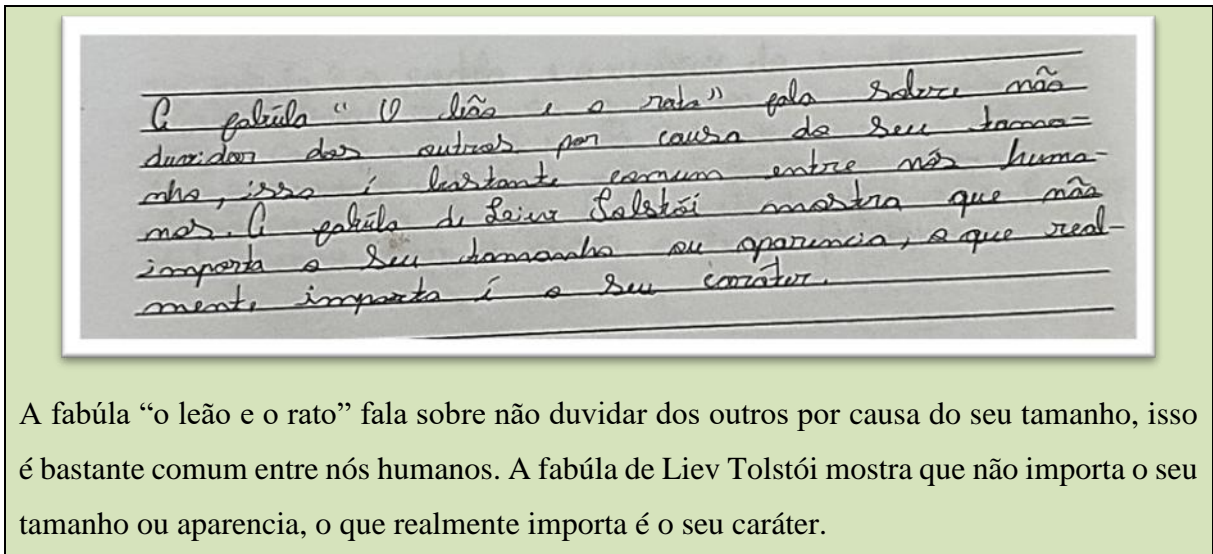 A fabúla “O leão e o rato” fala sobre não
duvidar dos outros por causa do seu tama=
nho, isso é bastante comum entre nós huma-
nos. A fabúla de Leiev Tolstói mostra que não
importa o seu tamanho ou aparencia, o que real-
mente importa é o seu caráter.
A fabúla “o leão e o rato” fala sobre não duvidar dos outros por causa do seu tamanho, isso
é bastante comum entre nós humanos. A fabúla de Liev Tolstói mostra que não importa o seu
tamanho ou aparencia, o que realmente importa é o seu caráter.